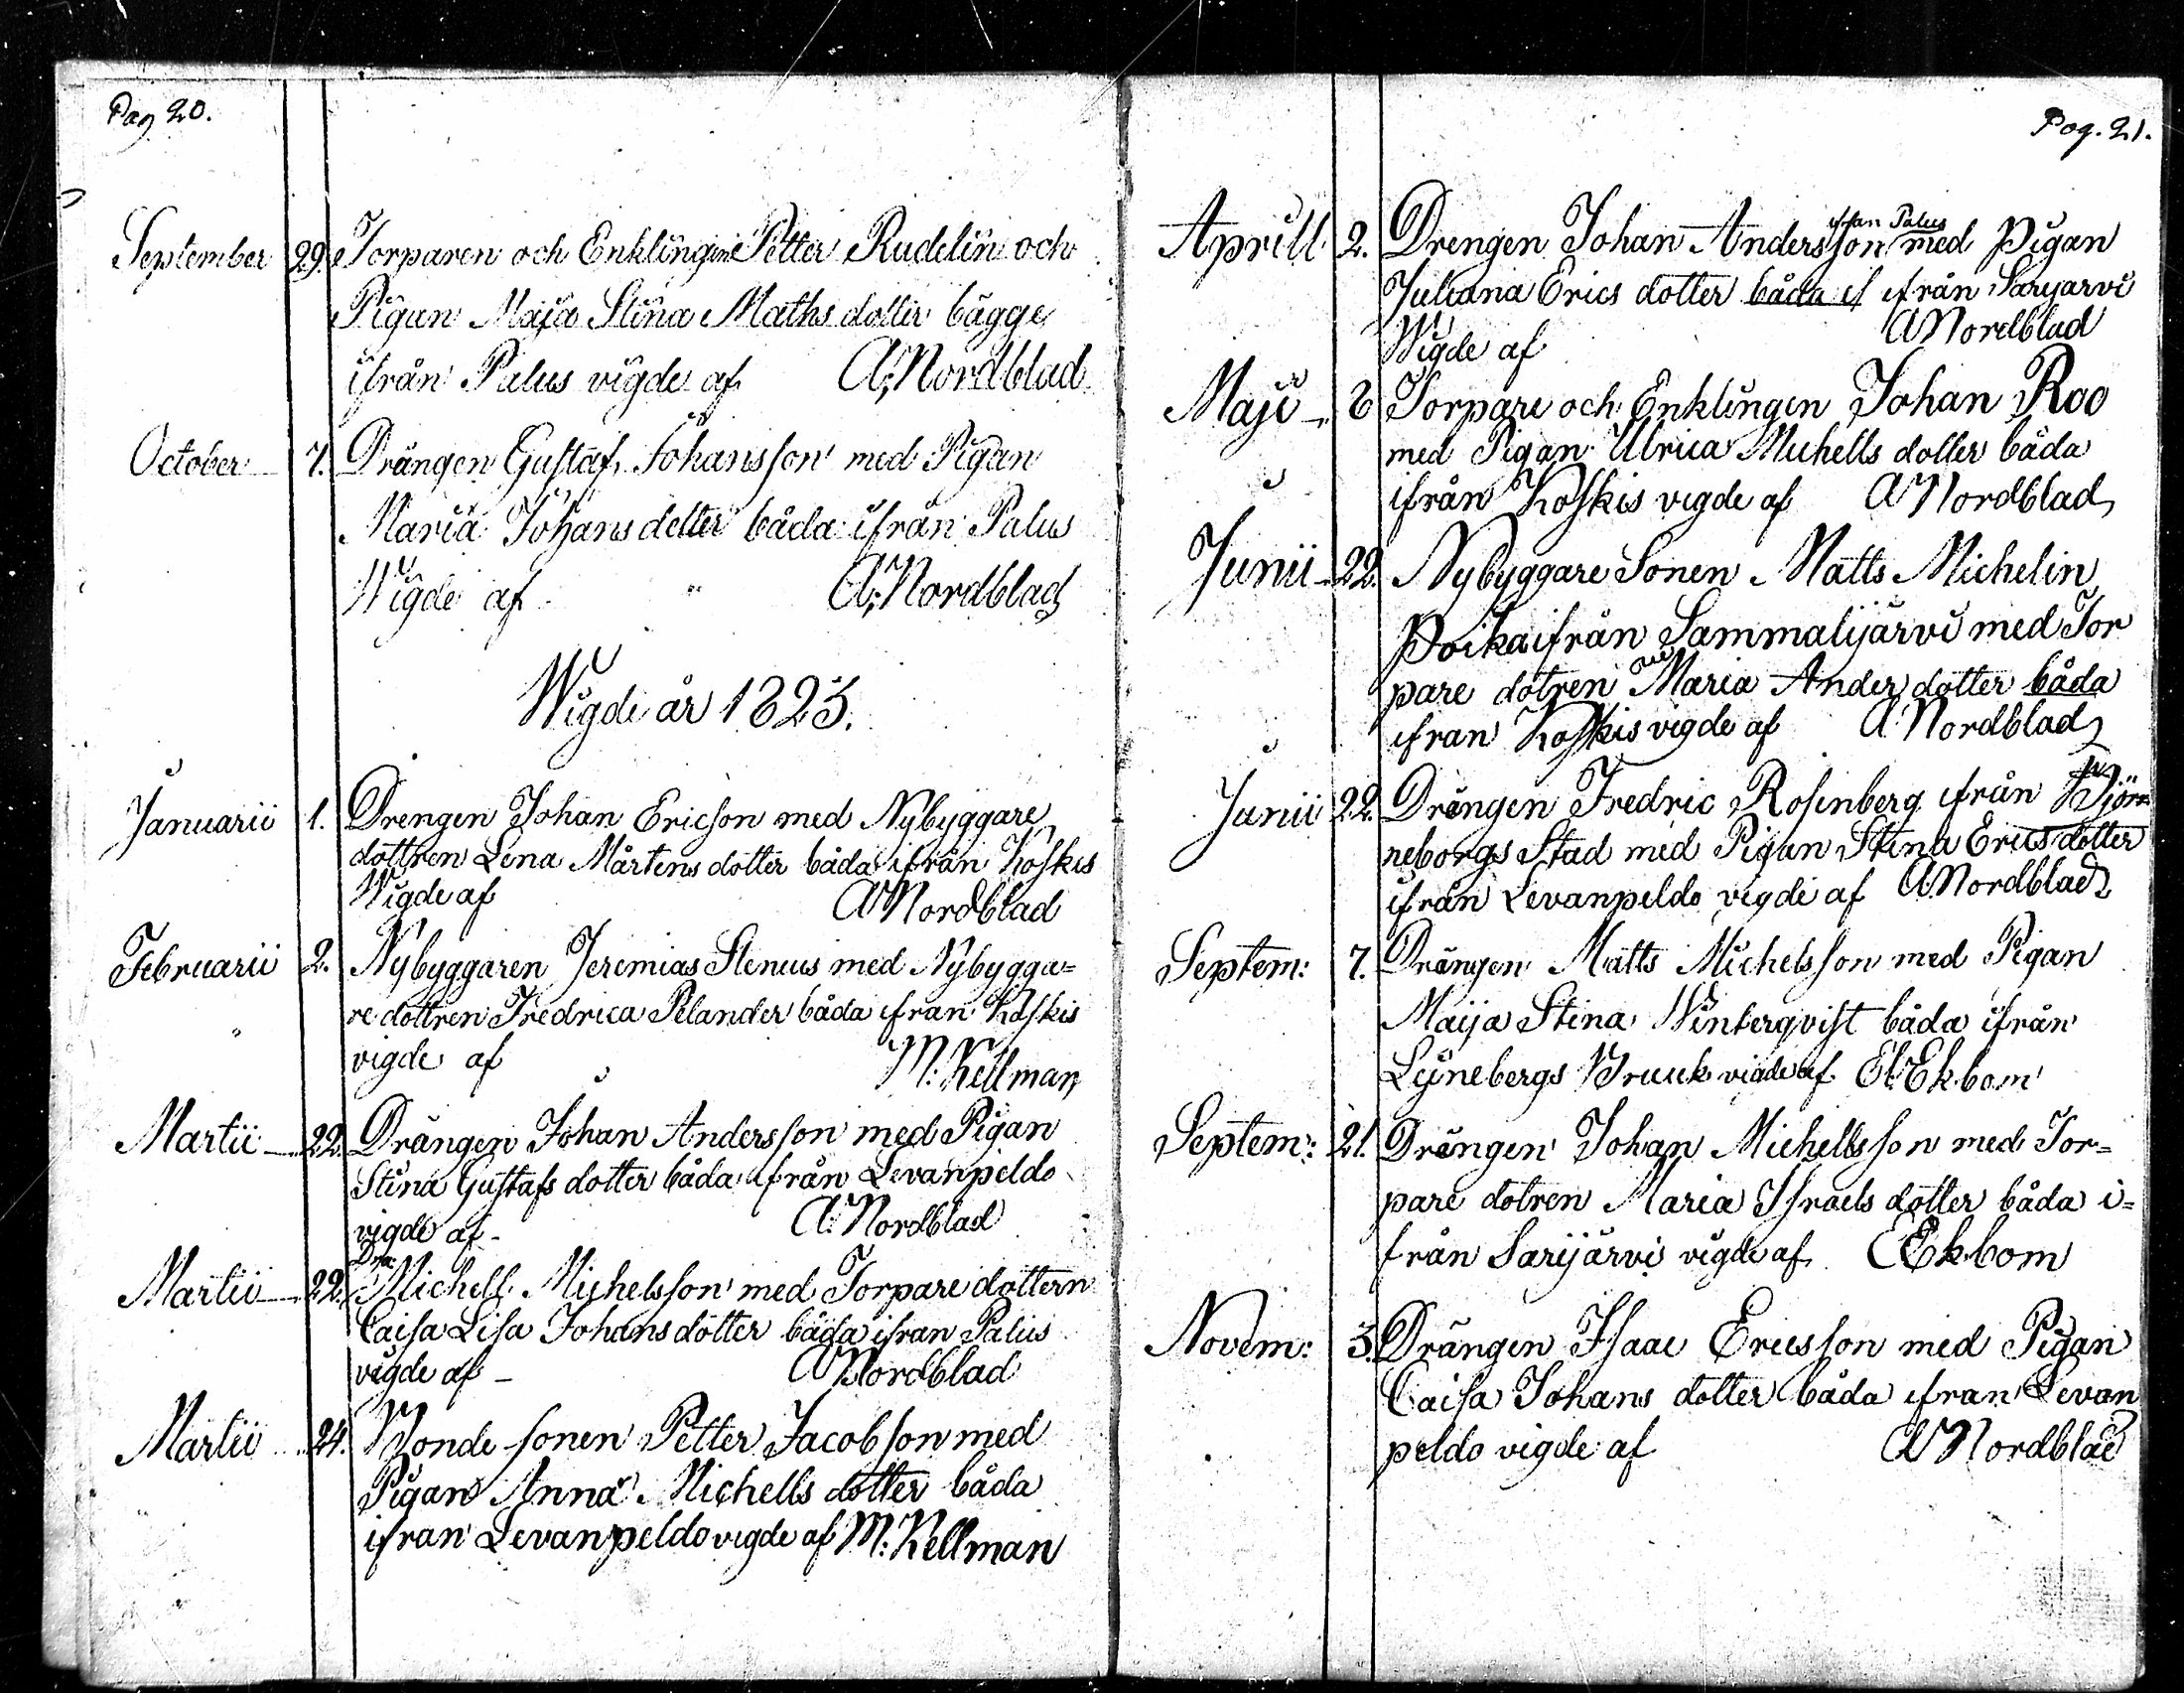 Pag 20.
September 29. Torparen och Enklingen Petter Rudelin och
Pigan Maja Stina Maths dotter bägge
ifrån Palus vigde af A. Nordblad
October 7. Drängen Gustaf Johansson med Pigan
Maria Johans dotter båda ifrån Palus
Wigde af A. Nordblad
Wigde år 1823.
Januarii 1. Drengen Johan Ericson med Nybyggare
dottren Lena Mårtens dotter båda ifrån Koskis
Wigde af A Nordblad
Februarii 2. Nybyggaren Jeremias Stenius med Nybygga=
re dottren Fredrica Pelander båda ifran Koskis
vigde af M. Kellman
Martii 22. Drängen Johan Andersson med Pigan
Stina Gustafs dotter båda ifrån Levanpeldo
vigde af A. Nordblad
Martii 22. Dr: Michell Michelsson med Torpare dottern
Caisa Lisa Johans dotter båda ifran Palus
vigde af A Nordblad
Martii 24. Bonde sonen Petter Jacobson med
Pigan Anna Michells dotter båda
ifran Levanpeldo vigde af M: Kellman
Pag. 21.
Aprill 2. Drengen Johan Andersson ifrån Palus med Pigan
Juliana Erics dotter båda if ifrån Saryarvi
Wigde af A Nordblad
Maji 8 Torpare och Enklingen Johan Roo
med Pigan Ulrica Michells dotter båda
ifrån Koskis vigde af A Nordblad
Junii 22. Nybyggare Sonen Matts Michelin
Poika ifrån Sammalijärvi med Tor
pare dotren Maria Anders dotter båda
ifran Koskis vigde af A Nordblad
Junii 22. Drängen Fredric Rosenberg ifrån Björ
neborgs Stad med Pigan Stina Erics dotter
ifrån Levanpeldo vigde af A Nordblad
Septem: 7. Drängen Matts Michelsson med Pigan
Maija Stina Winterqvist båda ifrån
Lÿnebergs Bruuk vigde af El Ekbom
Septem: 21. Drängen Johan Michellsson med Tor=
pare dotren Maria Israels dotter båda i=
från Sarijärvi vigde af E Ekbom
Novem: 3. Drängen Isaac Ericsson med Pigan
Caisa Johans dotter båda ifran Levan
peldo vigde af A Nordblad